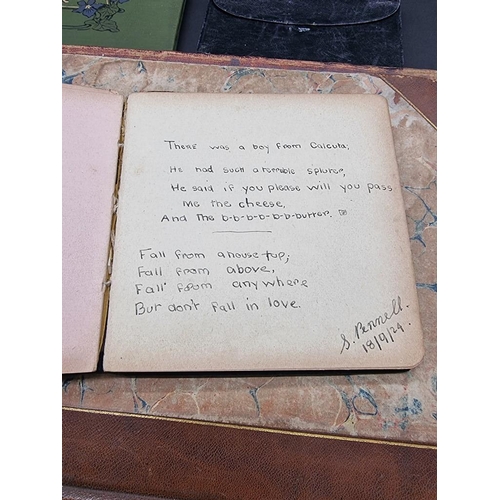 There was a boy from Calcuta;
He had such a terrible spluter,
He said if you please will you pass
me the cheese,
And the b-b-b-b-b-b-butter.
Fall from a house-top;
Fall from above,
Fall from anywhere
But don't fall in love.
S. Pennell.
18/9/29.